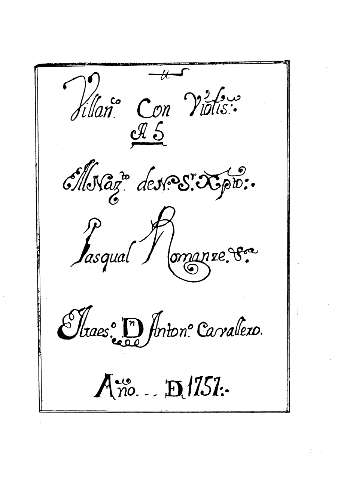 Villan.co Con Violis.
A 5
Al Naz.to de N. S.r Xpto.
Pasqual Romanze. &.a
Maes.o Dn Anton.o Cavallero.
Año... D 1757.